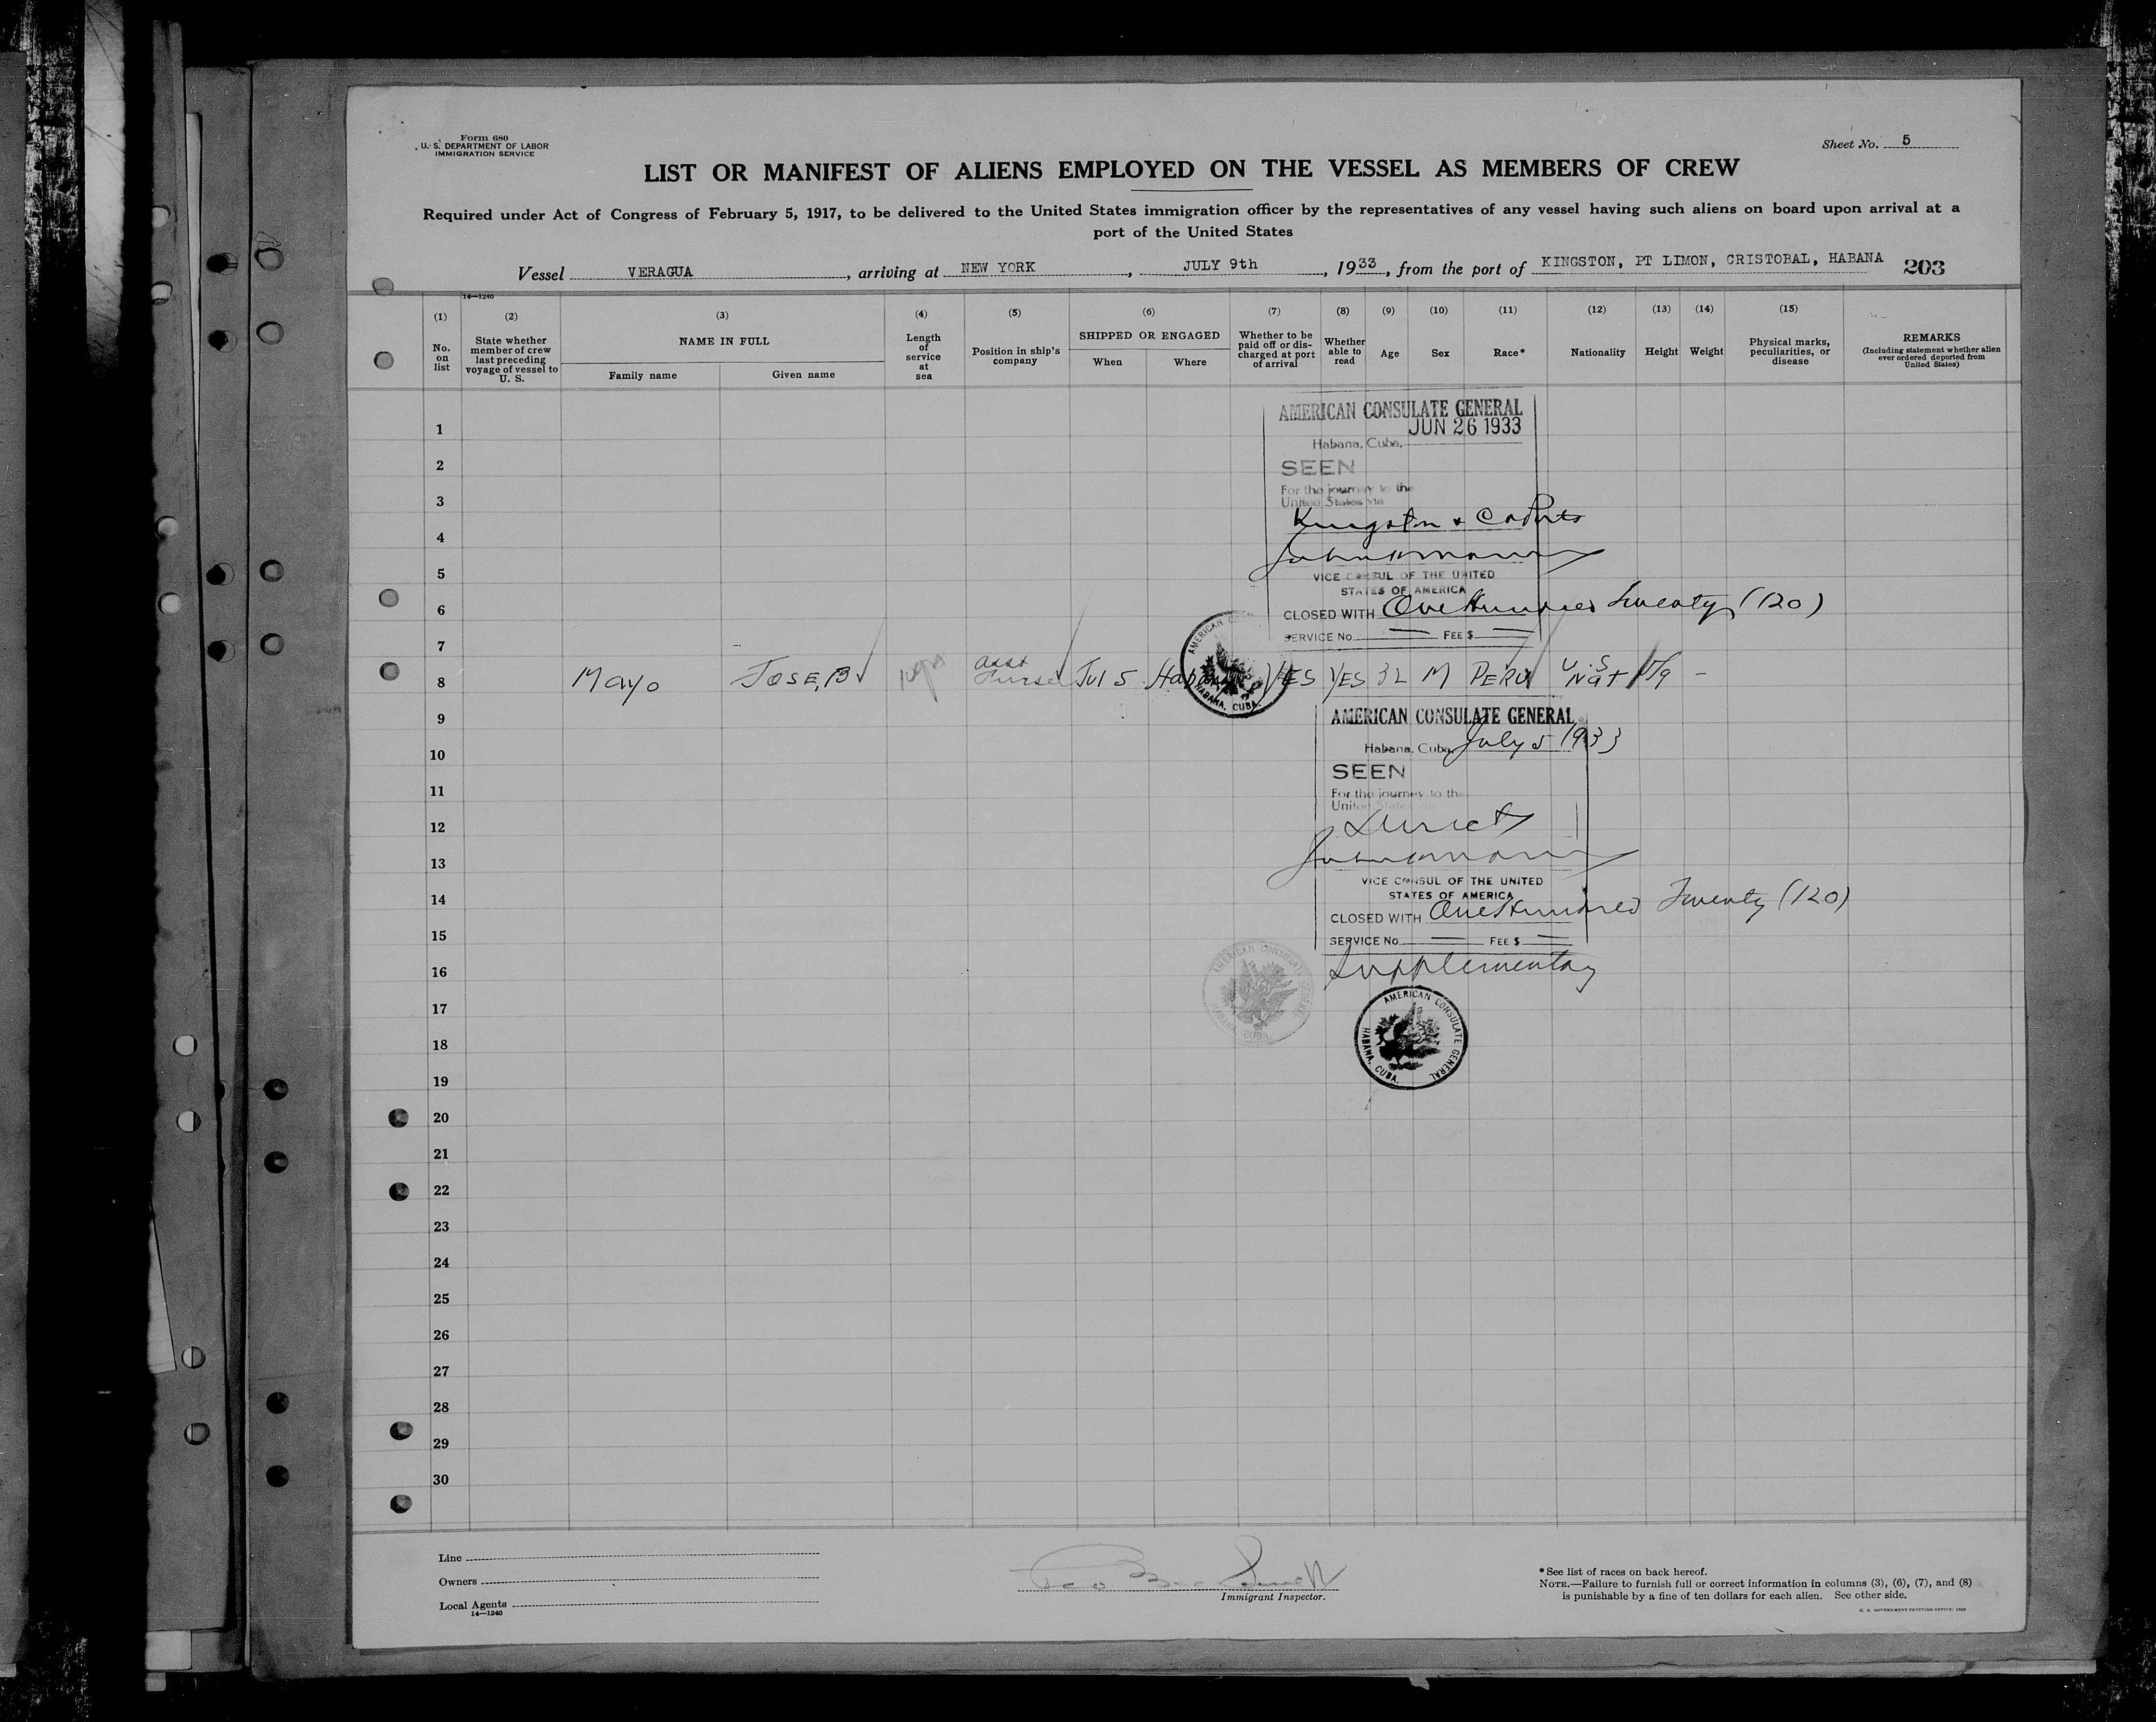 Form 680
U. S. DEPARTMENT OF LABOR
IMMIGRATION SERVICE
Sheet No. 5
LIST OR MANIFEST OF ALIENS EMPLOYED ON THE VESSEL AS MEMBERS OF CREW
Required under Act of Congress of February 5, 1917, to be delivered to the United States immigration officer by the representatives of any vessel having such aliens on board upon arrival at a
port of the United States
Vessel VERAGUA, arriving at NEW YORK, JULY 9th, 1933, from the port of KINGSTON, PT LIMON, CRISTOBAL, HABANA 203
14—1240
(1) (2) (3) (4) (5) (6) (7) (8) (9) (10) (11) (12) (13) (14) (15)
No. on list
State whether member of crew last preceding voyage of vessel to U. S.
NAME IN FULL
Family name
Given name
Length of service at sea
Position in ship's company
SHIPPED OR ENGAGED
When
Where
Whether to be paid off or discharged at port of arrival
Whether able to read
Age
Sex
Race*
Nationality
Height
Weight
Physical marks, peculiarities, or disease
REMARKS
(Including statement whether alien ever ordered deported from United States)
AMERICAN CONSULATE GENERAL
JUN 26 1933
Habana, Cuba,
1
2
SEEN
For the journey to the
United States via
3
Kingston & C
4
5
VICE CONSUL OF THE UNITED
STATES OF AMERICA
6
CLOSED WITH One Hundred Twenty (120)
SERVICE No. — FEE $ —
7
8 Mayo JOSE, B Asst Purser Jul 5 Habana YES YES 32 M PERU U.S Nat -
AMERICAN CONSULATE GENERAL
9
Habana, Cuba, July 5 1933
10
SEEN
11
For the journey to the
United States via
12
Direct
13
VICE CONSUL OF THE UNITED
STATES OF AMERICA
14
CLOSED WITH One Hundred Twenty (120)
15
SERVICE No. — FEE $ —
16
Supplementary
AMERICAN CONSULATE GENERAL
HABANA, CUBA.
17
18
19
20
21
22
23
24
25
26
27
28
29
30
Line
Owners
Local Agents
14—1240
Immigrant Inspector.
*See list of races on back hereof.
NOTE.—Failure to furnish full or correct information in columns (3), (6), (7), and (8)
is punishable by a fine of ten dollars for each alien. See other side.
U. S. GOVERNMENT PRINTING OFFICE: 1932